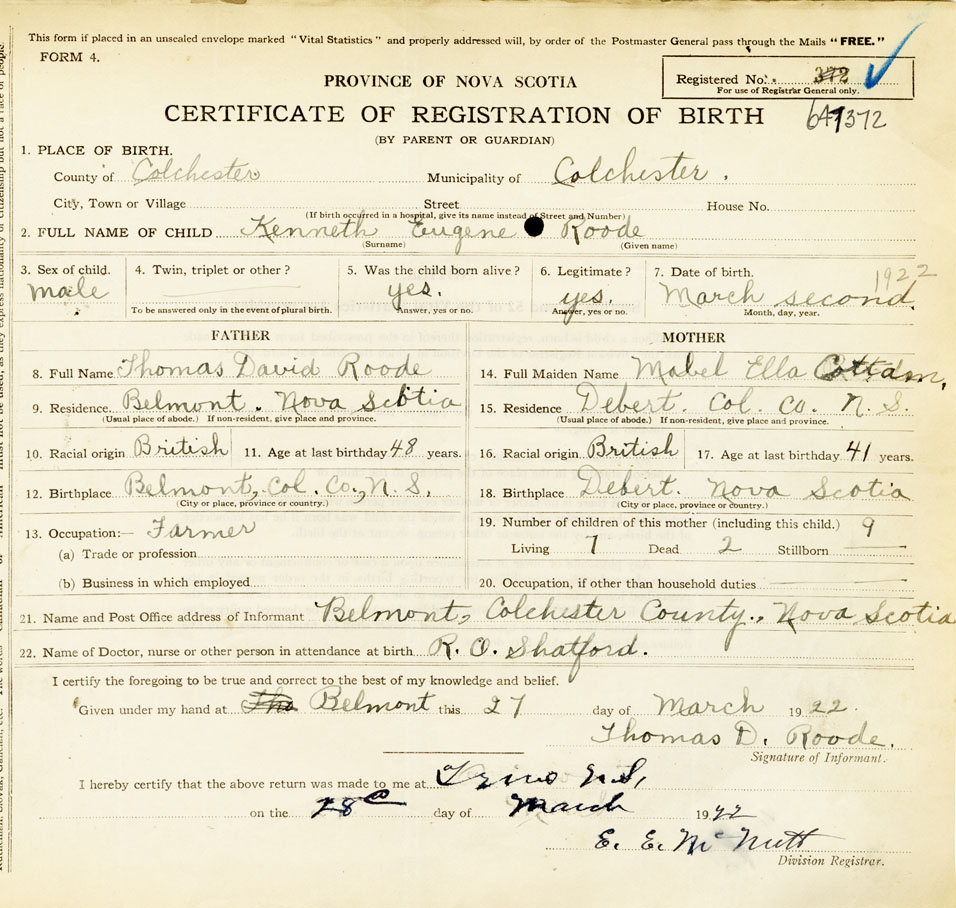 This form if placed in an unsealed envelope marked "Vital Statistics" and properly addressed will, by order of the Postmaster General pass through the Mails "FREE."
FORM 4.
PROVINCE OF NOVA SCOTIA
Registered No. 372
For use of Registrar General only.
CERTIFICATE OF REGISTRATION OF BIRTH
372
(BY PARENT OR GUARDIAN)
1. PLACE OF BIRTH.
County of Colchester Municipality of Colchester.
City, Town or Village Street House No.
(If birth occurred in a hospital, give its name instead of Street and Number)
2. FULL NAME OF CHILD Kenneth Eugene Roode
(Surname) (Given name)
3. Sex of child. male
4. Twin, triplet or other?
To be answered only in the event of plural birth.
5. Was the child born alive? yes.
Answer, yes or no.
6. Legitimate? yes.
Answer, yes or no.
7. Date of birth. 1922
March second
Month, day, year.
FATHER
8. Full Name Thomas David Roode
9. Residence. Belmont. Nova Scotia
(Usual place of abode.) If non-resident, give place and province.
10. Racial origin British 11. Age at last birthday 48 years.
12. Birthplace Belmont, Col. Co., N.S.
(City or place, province or country.)
13. Occupation:— Farmer
(a) Trade or profession
(b) Business in which employed
MOTHER
14. Full Maiden Name Mabel Ella Cottam,
15. Residence Debert. Col. Co. N.S.
(Usual place of abode.) If non-resident, give place and province.
16. Racial origin British 17. Age at last birthday 41 years.
18. Birthplace Debert. Nova Scotia
(City or place, province or country.)
19. Number of children of this mother (including this child.) 9
Living 7 Dead 2 Stillborn
20. Occupation, if other than household duties
21. Name and Post Office address of Informant Belmont, Colchester County., Nova Scotia
22. Name of Doctor, nurse or other person in attendance at birth R. O. Shatford.
I certify the foregoing to be true and correct to the best of my knowledge and belief.
Given under my hand at Belmont this 27 day of March 1922.
Thomas D. Roode.
Signature of Informant.
I hereby certify that the above return was made to me at N.S,
on the 28th day of March 1922
E. E. McNutt
Division Registrar.